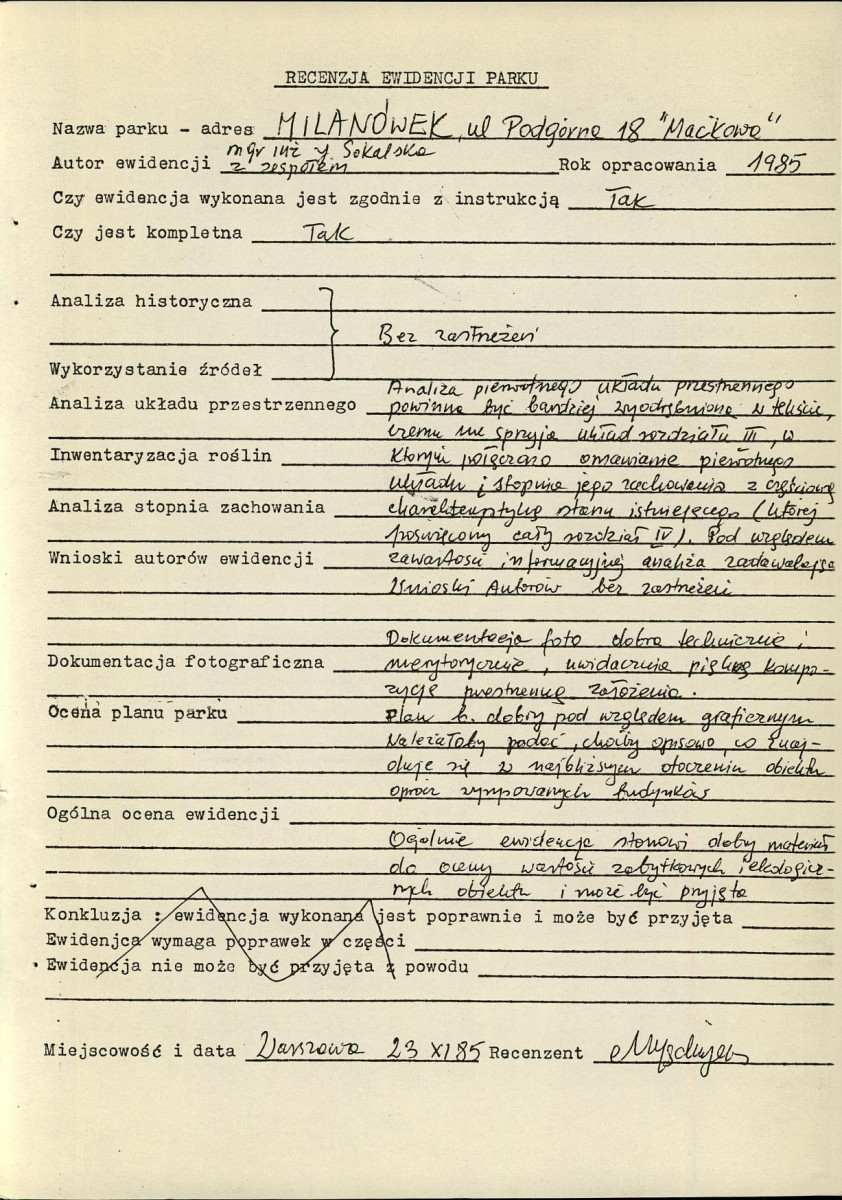 RECENZJA EWIDENCJI PARKU
Nazwa parku - adres MILANÓWEK, ul Podgórna 18 "Maćkowa"
mgr inż J Sokalska
Autor ewidencji z zespołem Rok opracowania 1985
Czy ewidencja wykonana jest zgodnie z instrukcją Tak
Czy jest kompletna Tak
Analiza historyczna
Bez zastrzeżeń
Wykorzystanie źródeł
Analiza pierwotnego układu przestrzennego
Analiza układu przestrzennego powinna być bardziej wyodrębniona w tekście,
czemu nie sprzyja układ rozdziału III, w
Inwentaryzacja roślin którym połączono omawianie pierwotnego
układu i stopnia jego zachowania z częściową
Analiza stopnia zachowania charakterystyką stanu istniejącego (której
poświęcony cały rozdział IV). Pod względem
Wnioski autorów ewidencji zawartości informacyjnej analiza zadawalająca
Wnioski Autorów bez zastrzeżeń
Dokumentacja foto dobra technicznie i
Dokumentacja fotograficzna merytorycznie, uwidacznia piękną kompo-
zycję przestrzenną założenia.
Ocena planu parku Plan b. dobry pod względem graficznym
Należałoby podać, choćby opisowo, co znaj-
duje się w najbliższym otoczeniu obiektu
oprócz budynków
Ogólna ocena ewidencji
Ogólnie ewidencja stanowi dobry materiał
do oceny wartości zabytkowych i ekologicz-
nych obiektu i może być przyjęta
Konkluzja : ewidencja wykonana jest poprawnie i może być przyjęta
Ewidenjca wymaga poprawek w części
Ewidencja nie może być przyjęta z powodu
Miejscowość i data Warszawa 23 XI 85 Recenzent